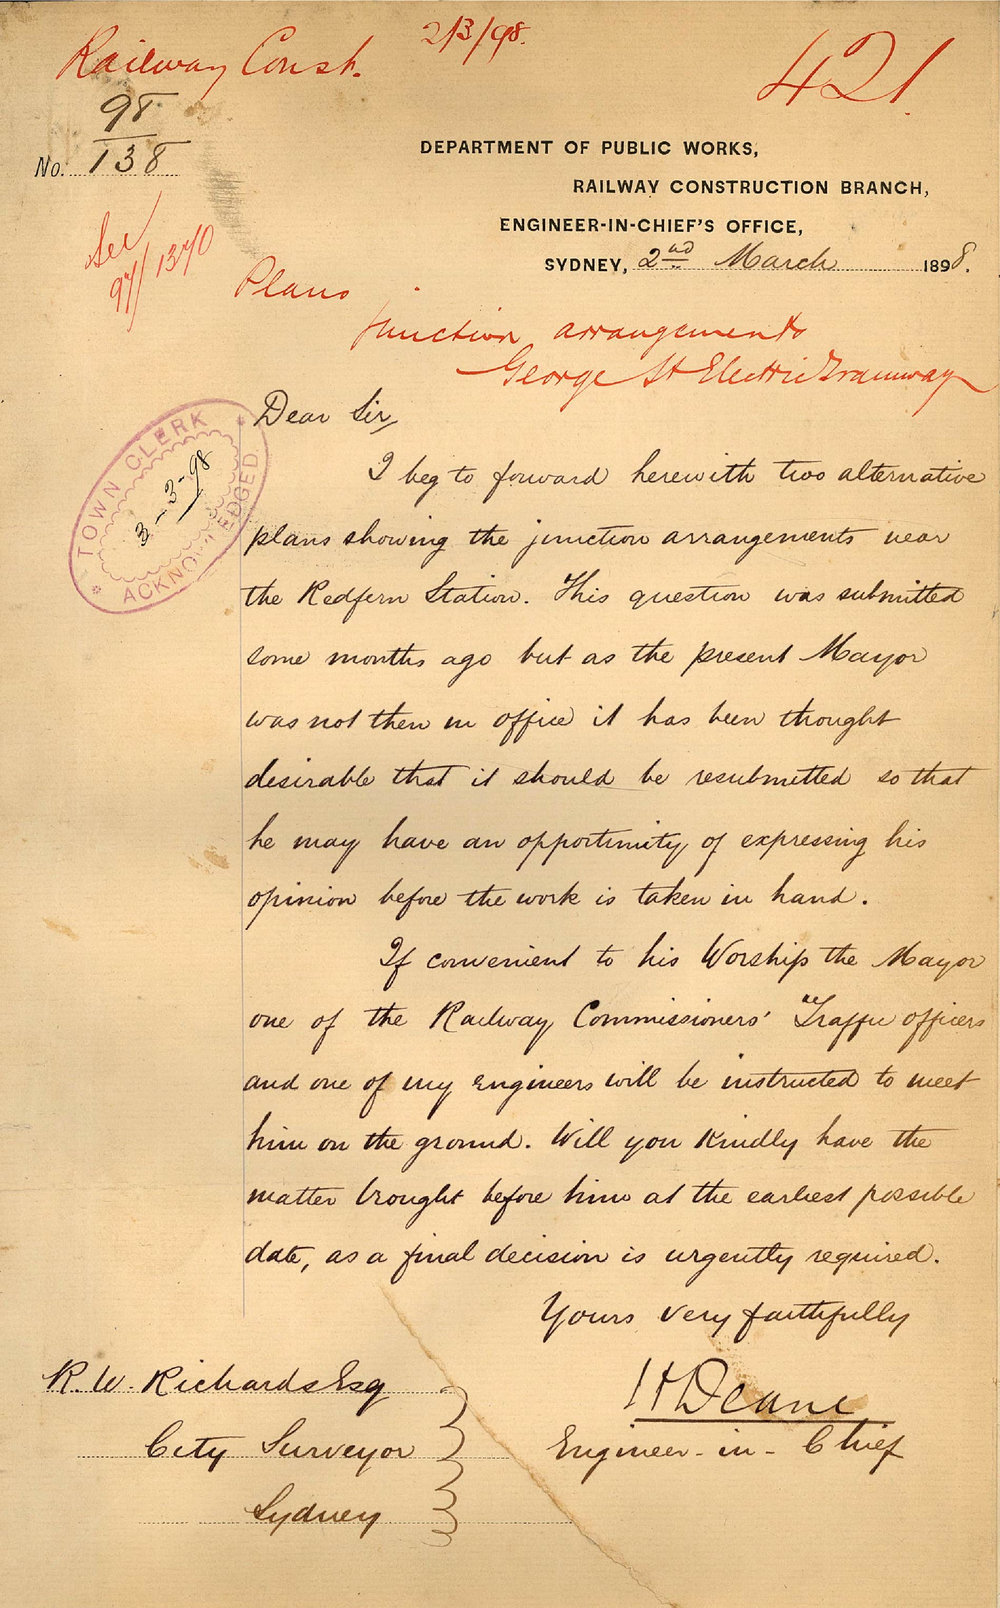 Railway Const.
2/3/98.
421
98
No. 138
DEPARTMENT OF PUBLIC WORKS,
RAILWAY CONSTRUCTION BRANCH,
ENGINEER-IN-CHIEF'S OFFICE,
SYDNEY, 2nd March 1898.
See
97/1370
Plans
junction arrangements
George St Electric Tramway
TOWN CLERK
3-3-98
ACKNOWLEDGED
Dear Sir,
I beg to forward herewith two alternative
plans showing the junction arrangements near
the Redfern Station. This question was submitted
some months ago but as the present Mayor
was not then in office it has been thought
desirable that it should be resubmitted so that
he may have an opportunity of expressing his
opinion before the work is taken in hand.
If convenient to his Worship the Mayor
one of the Railway Commissioners' Traffic officers
and one of my Engineers will be instructed to meet
him on the ground. Will you kindly have the
matter brought before him at the earliest possible
date, as a final decision is urgently required.
Yours very faithfully
H Deane
Engineer-in-Chief
R. W. Richards Esq
City Surveyor
Sydney